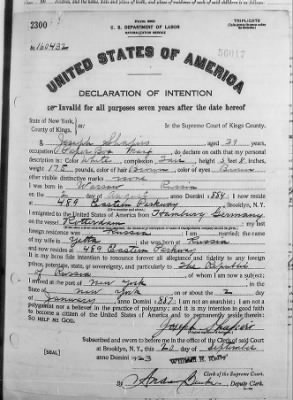 U. S. DEPARTMENT OF LABOR
NATURALIZATION SERVICE
TRIPLICATE
2300
No. 160432
56017
UNITED STATES OF AMERICA
DECLARATION OF INTENTION
Invalid for all purposes seven years after the date hereof
State of New York,
County of Kings,
In the Supreme Court of Kings County.
I, Joseph Shapiro, aged 39 years,
occupation Paper Box Manf, do declare on oath that my personal
description is: Color White, complexion Fair, height 5 feet 8 inches,
weight 175 pounds, color of hair Brown, color of eyes Brown
other visible distinctive marks none
I was born in Warsaw Russia
on the day of, anno Domini 1884; I now reside
at 469 Eastern Parkway, Brooklyn, N.Y.
I emigrated to the United States of America from Hamburg Germany
on the vessel Rotterdam; my last
foreign residence was Russia; I am married; the name
of my wife is Yetta; she was born at Russia
and now resides at 469 Eastern Parkway
It is my bona fide intention to renounce forever all allegiance and fidelity to any foreign
prince, potentate, state, or sovereignty, and particularly to The Republic
of Russia, of whom I am now a subject;
I arrived at the port of New York, in the
State of New York, on or about the 2 day
of January, anno Domini 1887; I am not an anarchist; I am not a
polygamist nor a believer in the practice of polygamy; and it is my intention in good faith
to become a citizen of the United States of America and to permanently reside therein:
SO HELP ME GOD.
Joseph Shapiro
Subscribed and sworn to before me in the office of the Clerk of said Court
at Brooklyn, N.Y., this 20 day of
[SEAL]
anno Domini 1923
Clerk of the Supreme Court.
By, Deputy Clerk.